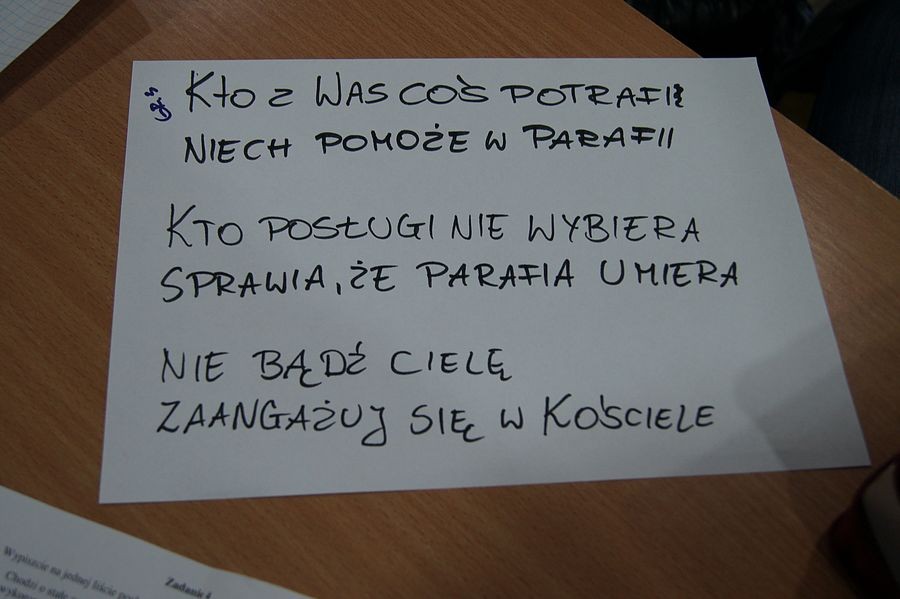 KTO Z WAS COŚ POTRAFI
NIECH POMOŻE W PARAFII
KTO POSŁUGI NIE WYBIERA
SPRAWIA, ŻE PARAFIA UMIERA
NIE BĄDŹ CIELĘ
ZAANGAŻUJ SIĘ W KOŚCIELE
Zadanie 4
Wypiszcie na jednej liście
Chodzi o stałe